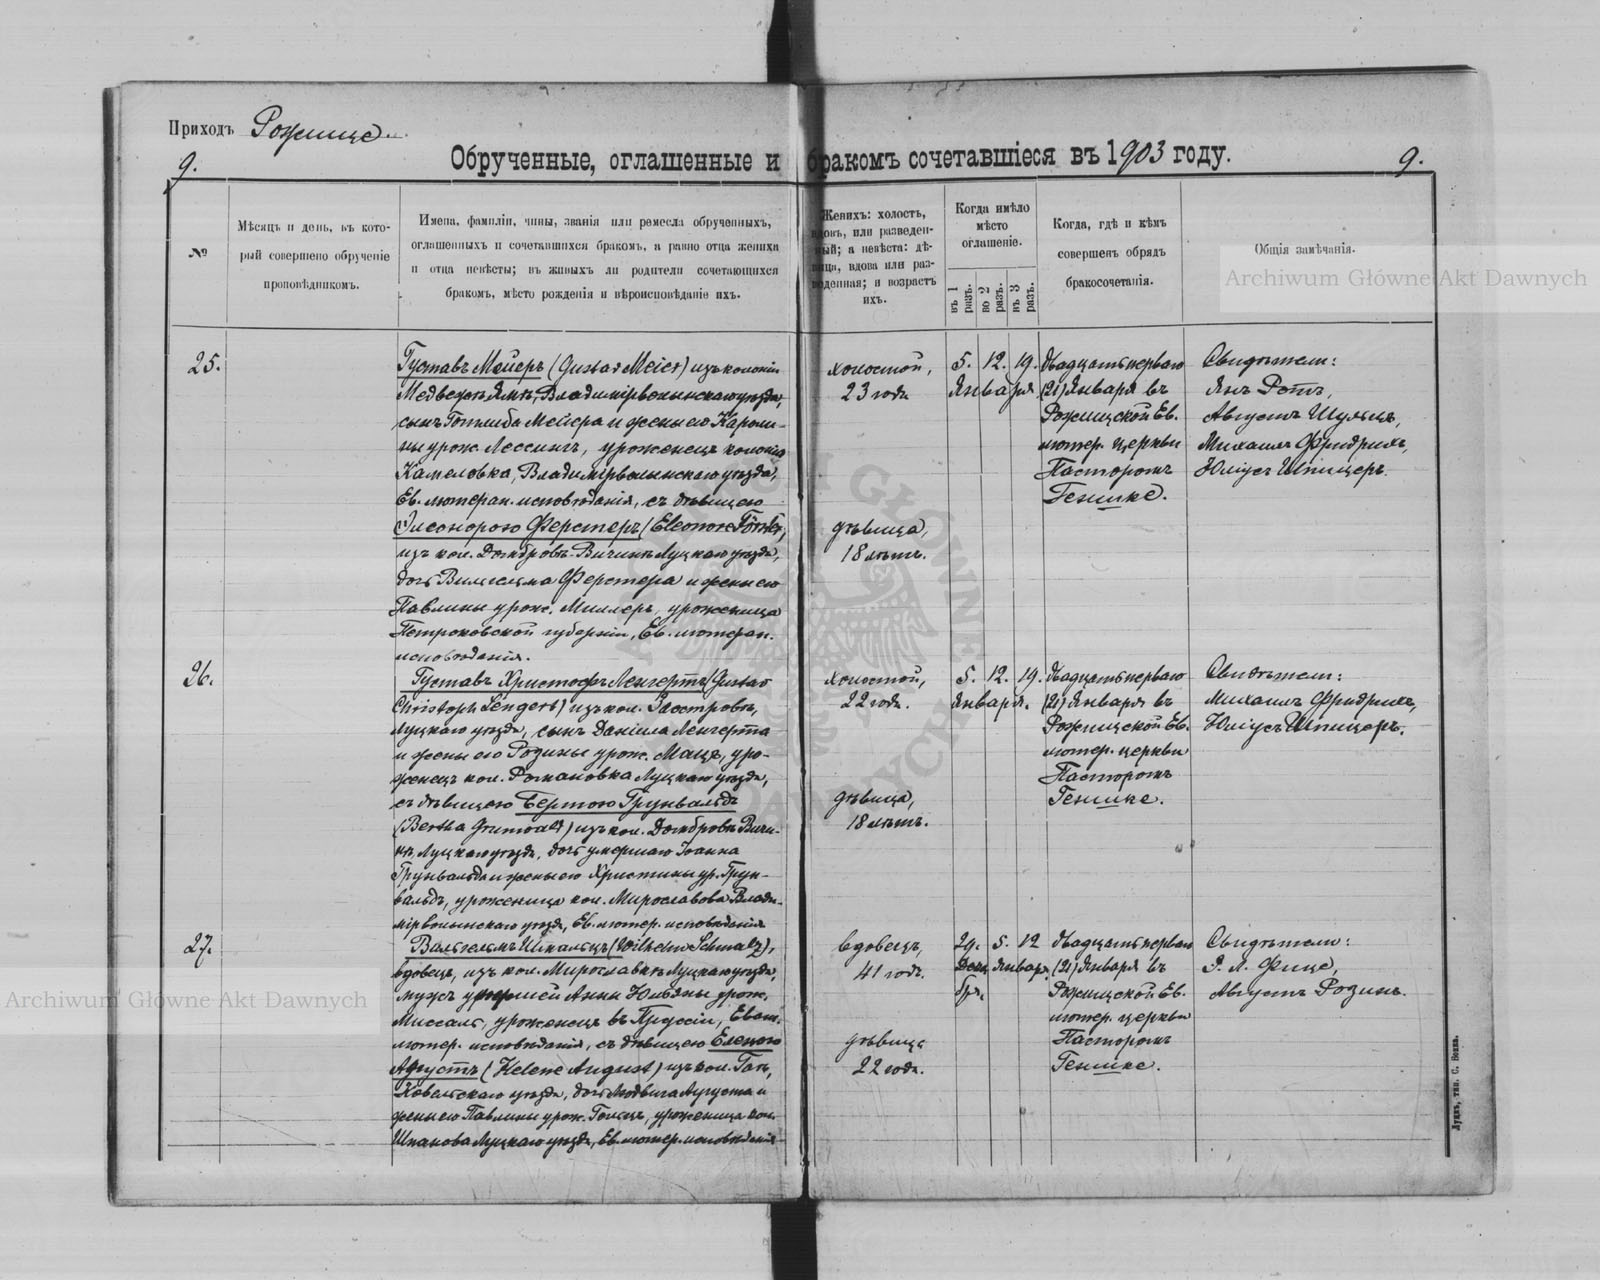 Приходъ Рожище.
9.
Обрученные, оглашенные и бракомъ сочетавшіеся въ 1903 году.
9.
№
Мѣсяцъ и день, въ кото-
рый совершено обрученіе
проповѣдникомъ.
Имена, фамиліи, чины, званія или ремесла обрученныхъ,
оглашенныхъ и сочетавшихся бракомъ, а равно отца жениха
и отца невѣсты; въ живыхъ ли родители сочетающихся
бракомъ, мѣсто рожденія и вѣроисповѣданіе ихъ.
Женихъ: холостъ,
вдовъ, или разведен-
ный; а невѣста: дѣ-
вица, вдова или раз-
веденная; и возрастъ
ихъ.
Когда имѣло
мѣсто
оглашеніе.
въ 1 разъ.
во 2 разъ.
въ 3 разъ.
Когда, гдѣ и кѣмъ
совершенъ обрядъ
бракосочетанія.
Общія замѣчанія.
Archiwum Główne Akt Dawnych
25.
Густавъ Мейеръ (Gustav Meier) изъ колоніи
Владимірволынскаго уѣзда,
сынъ Готлиба Мейера и жены его Кароли-
ны урож. Лессингъ, уроженецъ колоніи
Камеловка, Владимірволынскаго уѣзда,
Ев. лютеран. исповѣданія, съ дѣвицею
Элеонорою Ферстеръ (Eleonore Förster),
изъ кол. Домбровъ-Вичинъ Луцкаго уѣзда,
дочь Вильгельма Ферстера и жены его
Павлины урож. Миллеръ, уроженица
Петроковской губерніи, Ев. лютеран.
исповѣданія.
холостой,
23 года
дѣвица,
18 лѣтъ.
5. 12. 19.
Января
Двадцать перваго
(21) Января въ
Рожищской Ев.
лютер. церкви
Пасторомъ
Генишке.
Свидѣтели:
Янъ Ротъ,
Августъ Шульцъ,
Михаилъ Фридрихъ,
Юліусъ Шпицеръ.
26.
Густавъ Христофъ Ленгертъ (Gustav
Christoph Lengert) изъ кол. Заостровъ,
Луцкаго уѣзда, сынъ Даніила Ленгерта
и жены его Розины урож. Маца, уро-
женецъ кол. Романовка Луцкаго уѣзда,
съ дѣвицею Бертою Грунвальдъ
(Bertha Grunwald) изъ кол. Домбровъ Вичи-
нъ, Луцкаго уѣзда, дочь умершаго Іоанна
Грунвальда и жены его Христины ур. Грун-
вальдъ, уроженица кол. Мирославова Влади-
мірволынскаго уѣзда, Ев. лютер. исповѣданія
холостой,
22 года.
дѣвица,
18 лѣтъ.
5. 12. 19.
Января.
Двадцать перваго
(21) Января въ
Рожищской Ев.
лютер. церкви
Пасторомъ
Генишке.
Свидѣтели:
Михаилъ Фридрихъ,
Юліусъ Шпицеръ.
27.
Вильгельмъ Шмальцъ (Wilhelm Schmalz),
вдовецъ, изъ кол. Мирославка Луцкаго уѣзда,
мужъ умершей Анны Юліаны урож.
Миссаль, уроженецъ въ Пруссіи, Еван.
лютер. исповѣданія, съ дѣвицею Еленою
Августъ (Helene August) изъ кол.
Ковельскаго уѣзда, дочь Людвига Августа и
жены его Павлины урож. Гольцъ, уроженица кол.
Шпакова Луцкаго уѣзда, Ев. лютер. исповѣданія
вдовецъ,
41 годъ.
дѣвица
22 года.
29. 5. 12
Дека Января.
бря.
Двадцать перваго
(21) Января въ
Рожищской Ев.
лютер. церкви
Пасторомъ
Генишке.
Свидѣтели:
Э. Л. Фице,
Августъ Розинъ.
Archiwum Główne Akt Dawnych
Луцкъ, тип. С. Бокка.